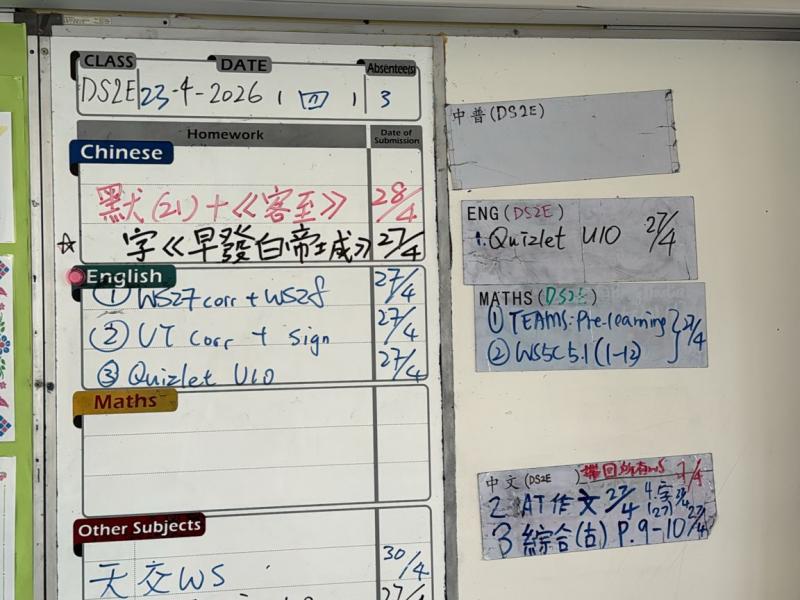 CLASS DATE Absentee(s)
DS2E 23-4-2026 (四) 3
Homework Date of Submission
Chinese
默(21)+《客至》 28/4
☆ 字《早發白帝城》 27/4
English
① WS27 corr + WS28 27/4
② UT corr + sign 27/4
③ Quizlet U10 27/4
Maths
Other Subjects
天交WS 30/4
27/4
中普(DS2E)
ENG(DS2E)
1. Quizlet U10 27/4
MATHS(DS2E)
① TEAMS: Pre-learning } 27/4
② WS5C5.1(1-12)
中文(DS2E) 帶回所有WS
2. AT作文 27/4 4.字
3 綜合(古) P.9-10 27/4